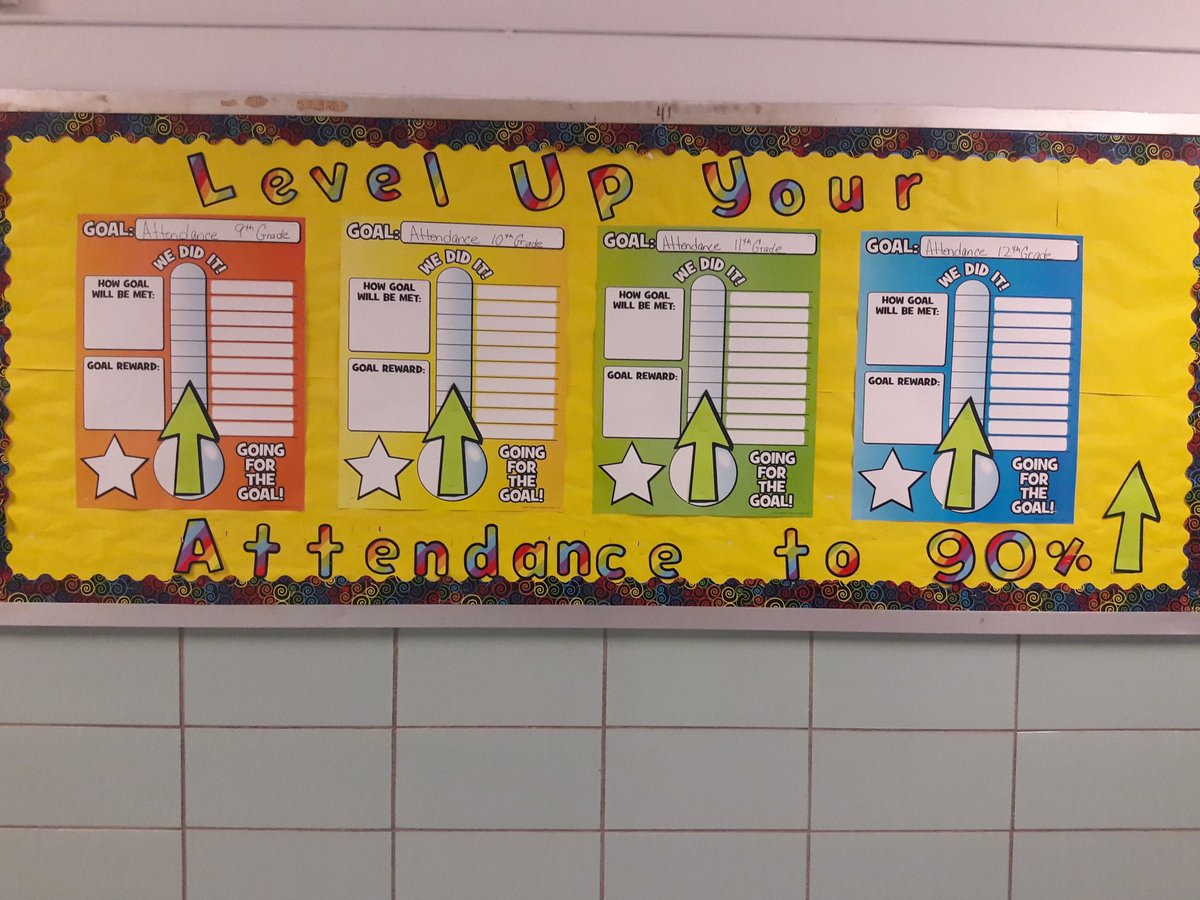 41
Level Up Your
GOAL: Attendance 9th Grade
WE DID IT!
HOW GOAL
WILL BE MET:
GOAL REWARD:
GOING
FOR
THE
GOAL!
GOAL: Attendance 10th Grade
WE DID IT!
HOW GOAL
WILL BE MET:
GOAL REWARD:
GOING
FOR
THE
GOAL!
GOAL: Attendance 11th Grade
WE DID IT!
HOW GOAL
WILL BE MET:
GOAL REWARD:
GOING
FOR
THE
GOAL!
GOAL: Attendance 12th Grade
WE DID IT!
HOW GOAL
WILL BE MET:
GOAL REWARD:
GOING
FOR
THE
GOAL!
Attendance to 90%